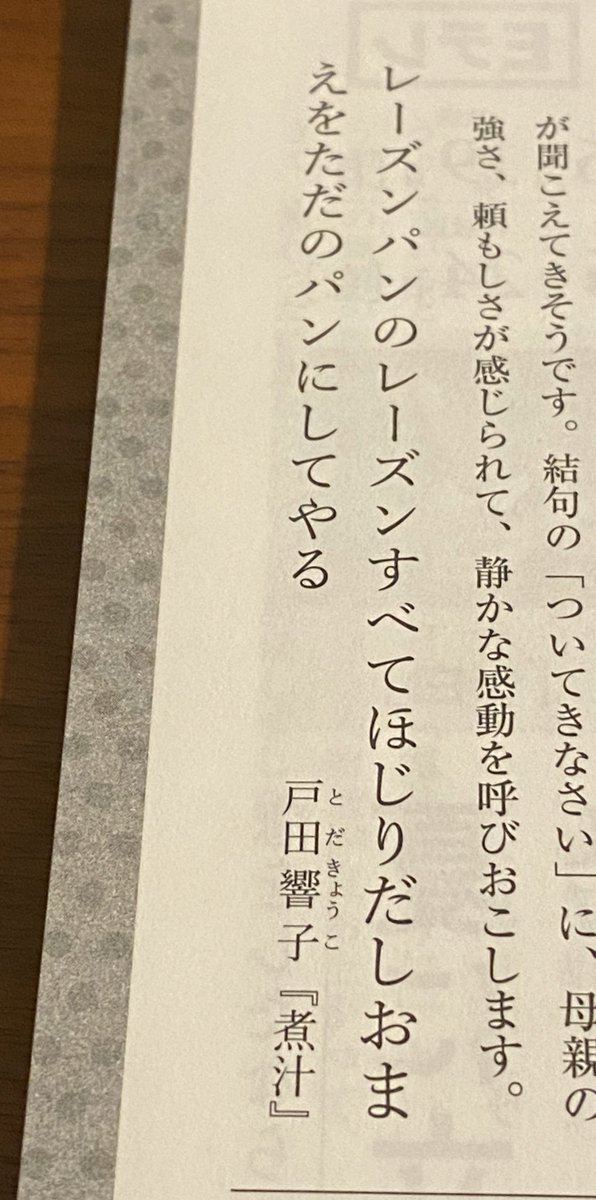 が聞こえてきそうです。結句の「ついてきなさい」に、母親の
強さ、頼もしさが感じられて、静かな感動を呼びおこします。
レーズンパンのレーズンすべてほじりだしおま
えをただのパンにしてやる
戸田響子『煮汁』
とだきょうこ